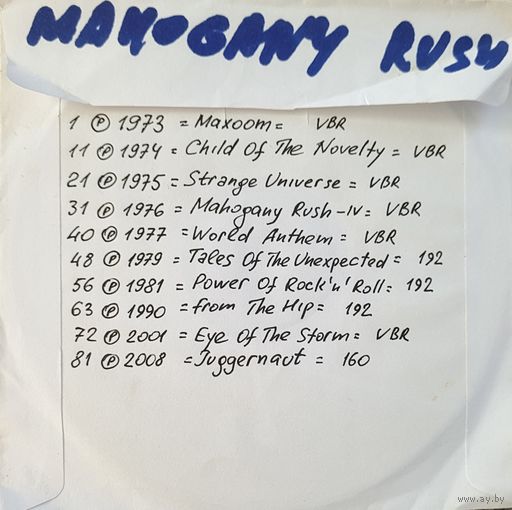 MAHOGANY RUSH
1 Ⓟ 1973 = Maxoom = VBR
11 Ⓟ 1974 = Child Of The Novelty = VBR
21 Ⓟ 1975 = Strange Universe = VBR
31 Ⓟ 1976 = Mahogany Rush-IV = VBR
40 Ⓟ 1977 = World Anthem = VBR
48 Ⓟ 1979 = Tales Of The Unexpected = 192
56 Ⓟ 1981 = Power Of Rock'n'Roll = 192
63 Ⓟ 1990 = from The Hip = 192
72 Ⓟ 2001 = Eye Of The Storm = VBR
81 Ⓟ 2008 = Juggernaut = 160
www.ay.by